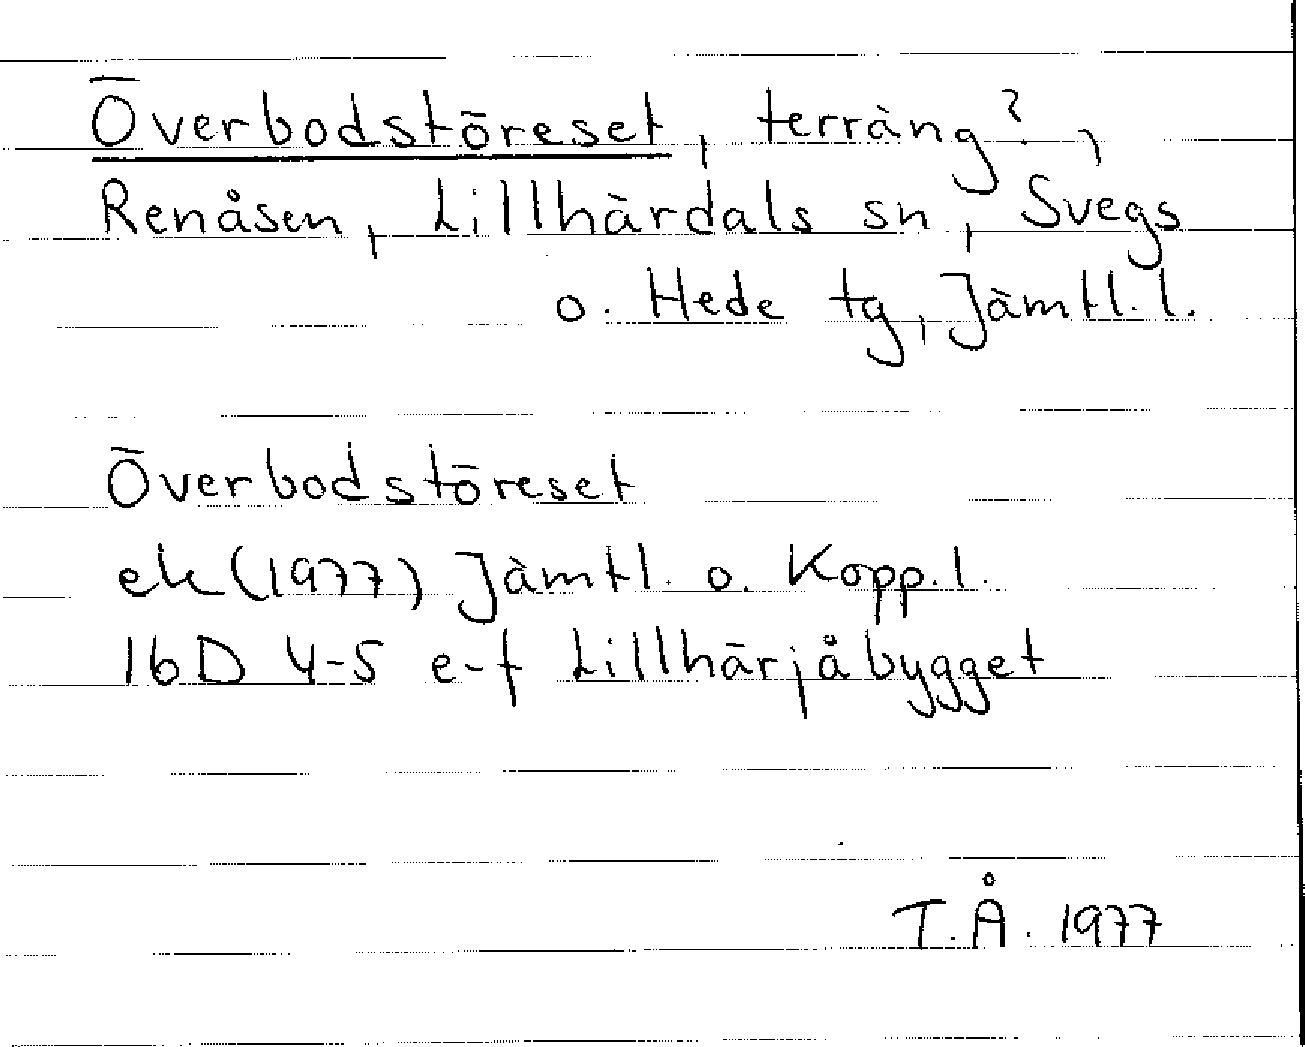 Överbodstöreset, terräng?,
Renåsen, Lillhärdals sn, Svegs
o. Hede tg, Jämtl. l.
Överbodstöreset
ek (1977) Jämtl. o. Kopp. l.
16D 4-5 e-f Lillhärjåbygget
T.Å. 1977